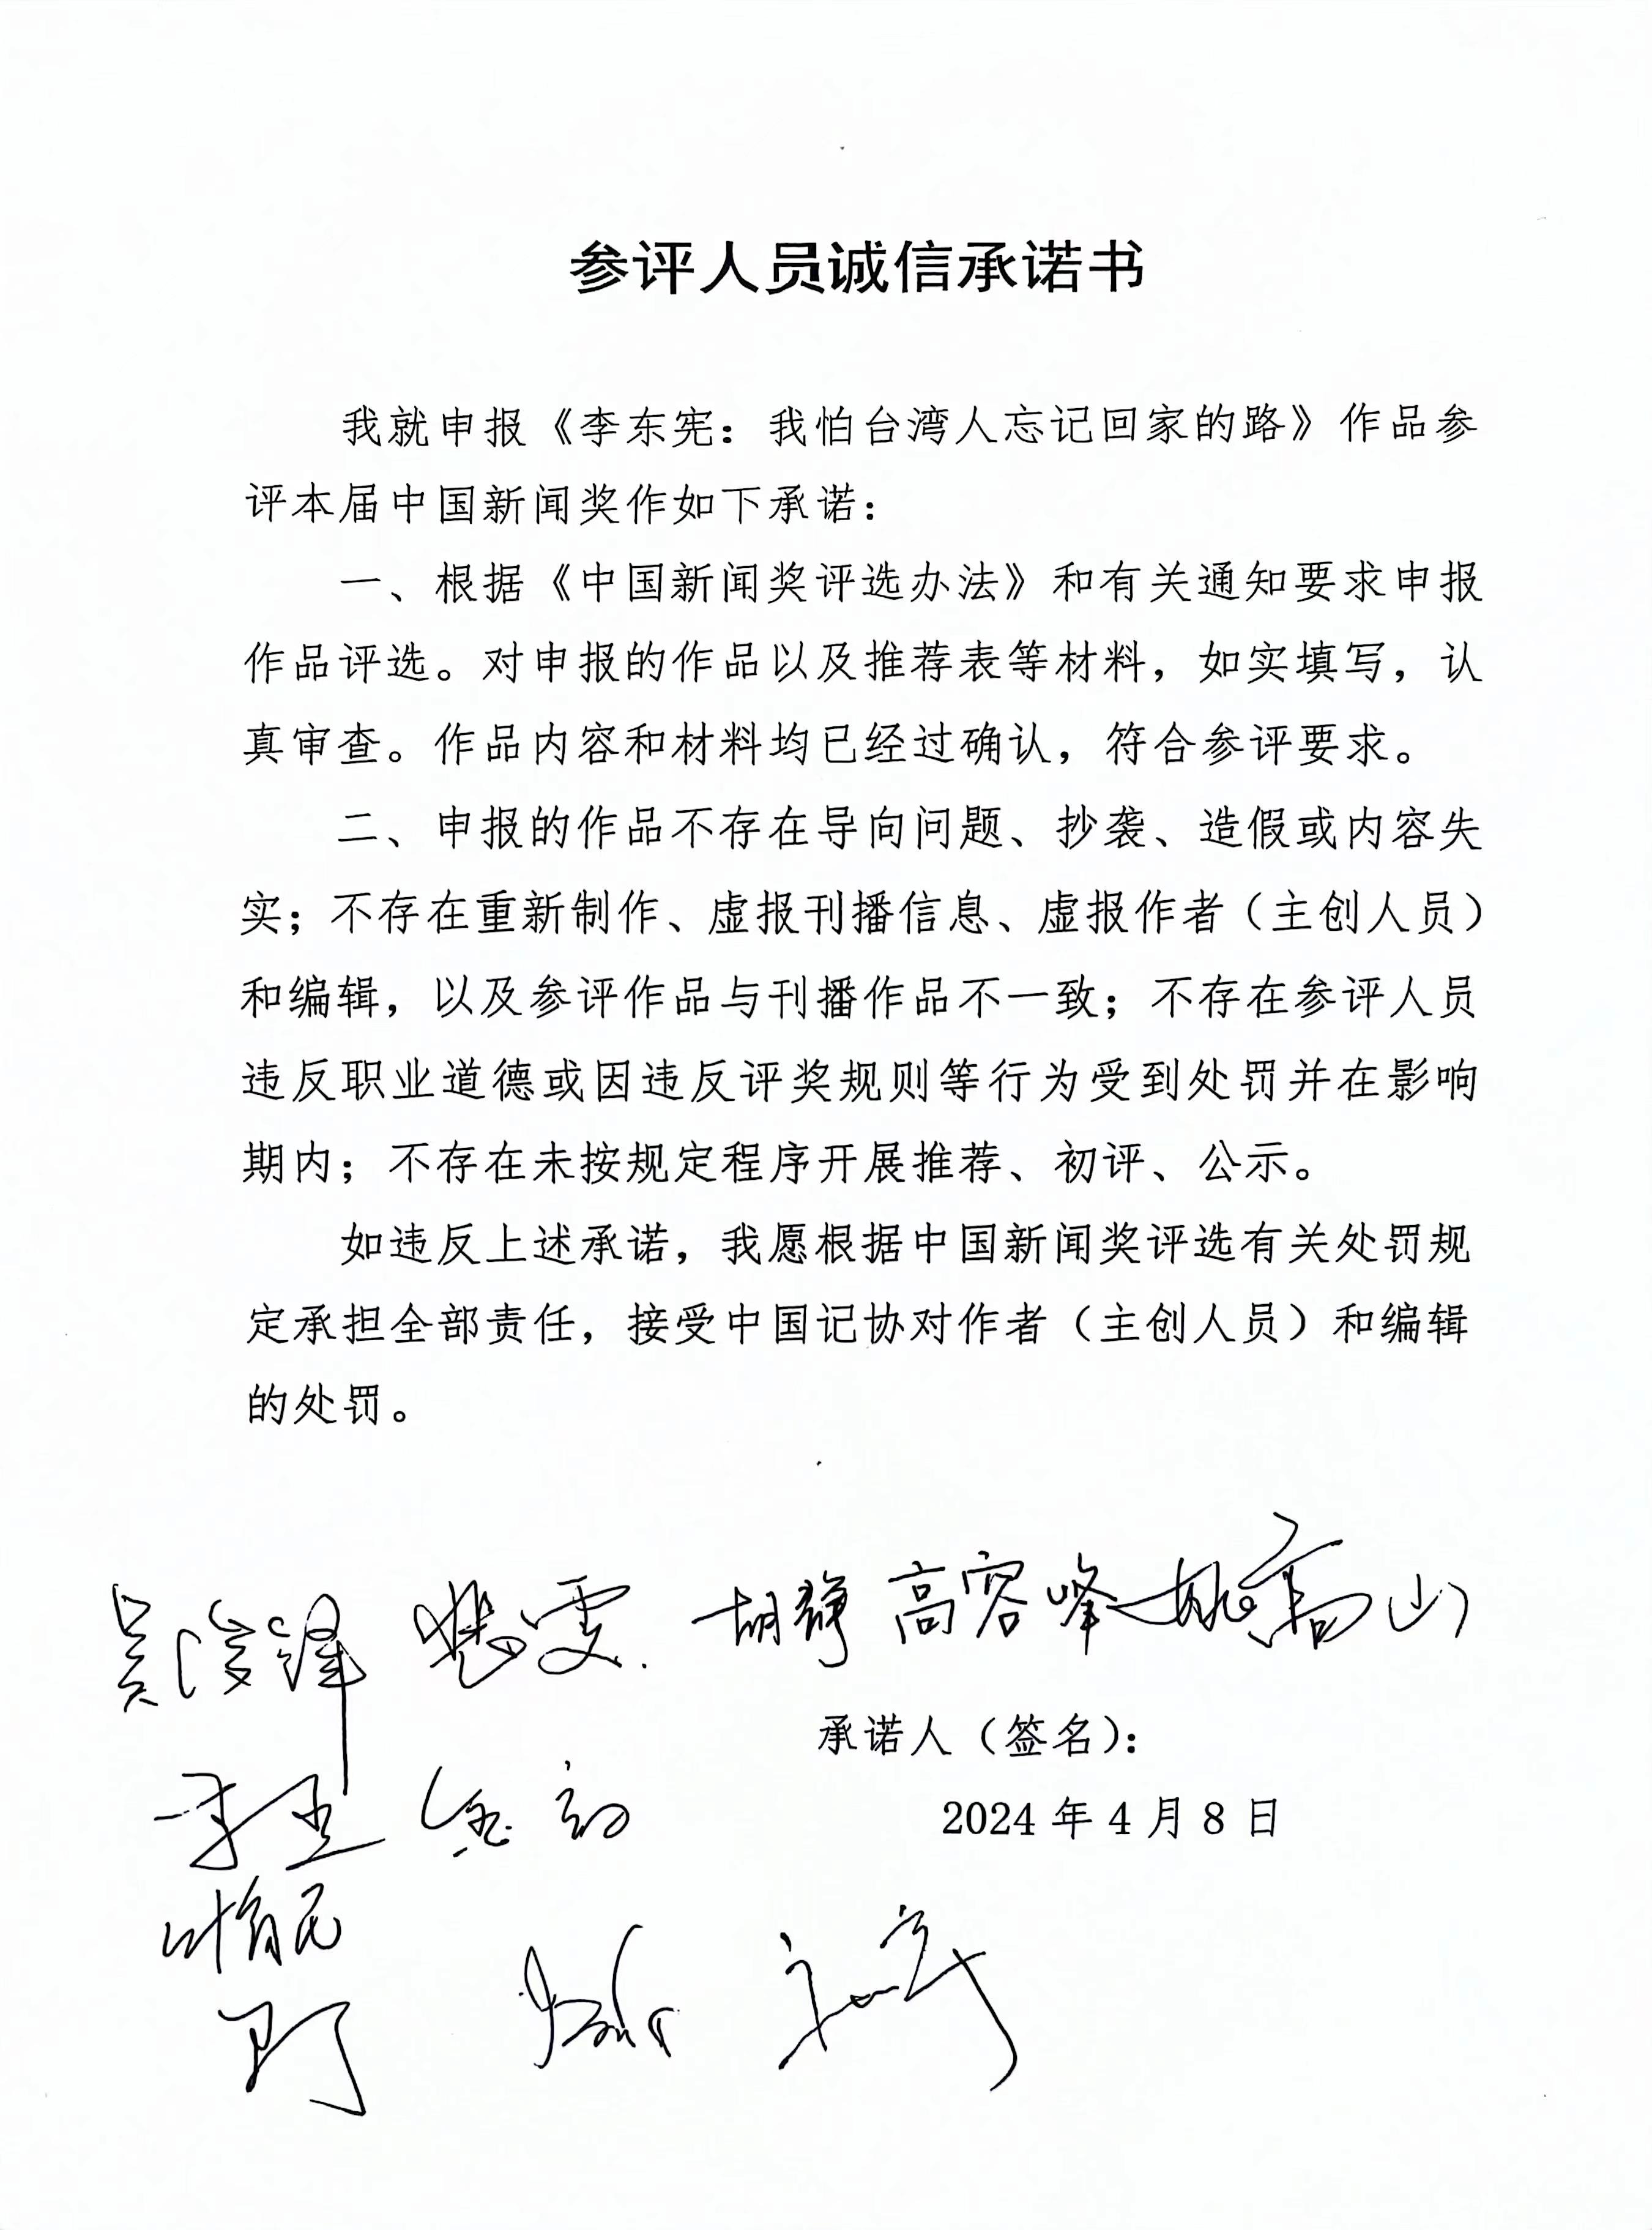 参评人员诚信承诺书
我就申报《李东宪：我怕台湾人忘记回家的路》作品参
评本届中国新闻奖作如下承诺：
一、根据《中国新闻奖评选办法》和有关通知要求申报
作品评选。对申报的作品以及推荐表等材料，如实填写，认
真审查。作品内容和材料均已经过确认，符合参评要求。
二、申报的作品不存在导向问题、抄袭、造假或内容失
实；不存在重新制作、虚报刊播信息、虚报作者（主创人员）
和编辑，以及参评作品与刊播作品不一致；不存在参评人员
违反职业道德或因违反评奖规则等行为受到处罚并在影响
期内；不存在未按规定程序开展推荐、初评、公示。
如违反上述承诺，我愿根据中国新闻奖评选有关处罚规
定承担全部责任，接受中国记协对作者（主创人员）和编辑
的处罚。
胡静 高容峰 姚高山
承诺人（签名）：
2024 年 4 月 8 日